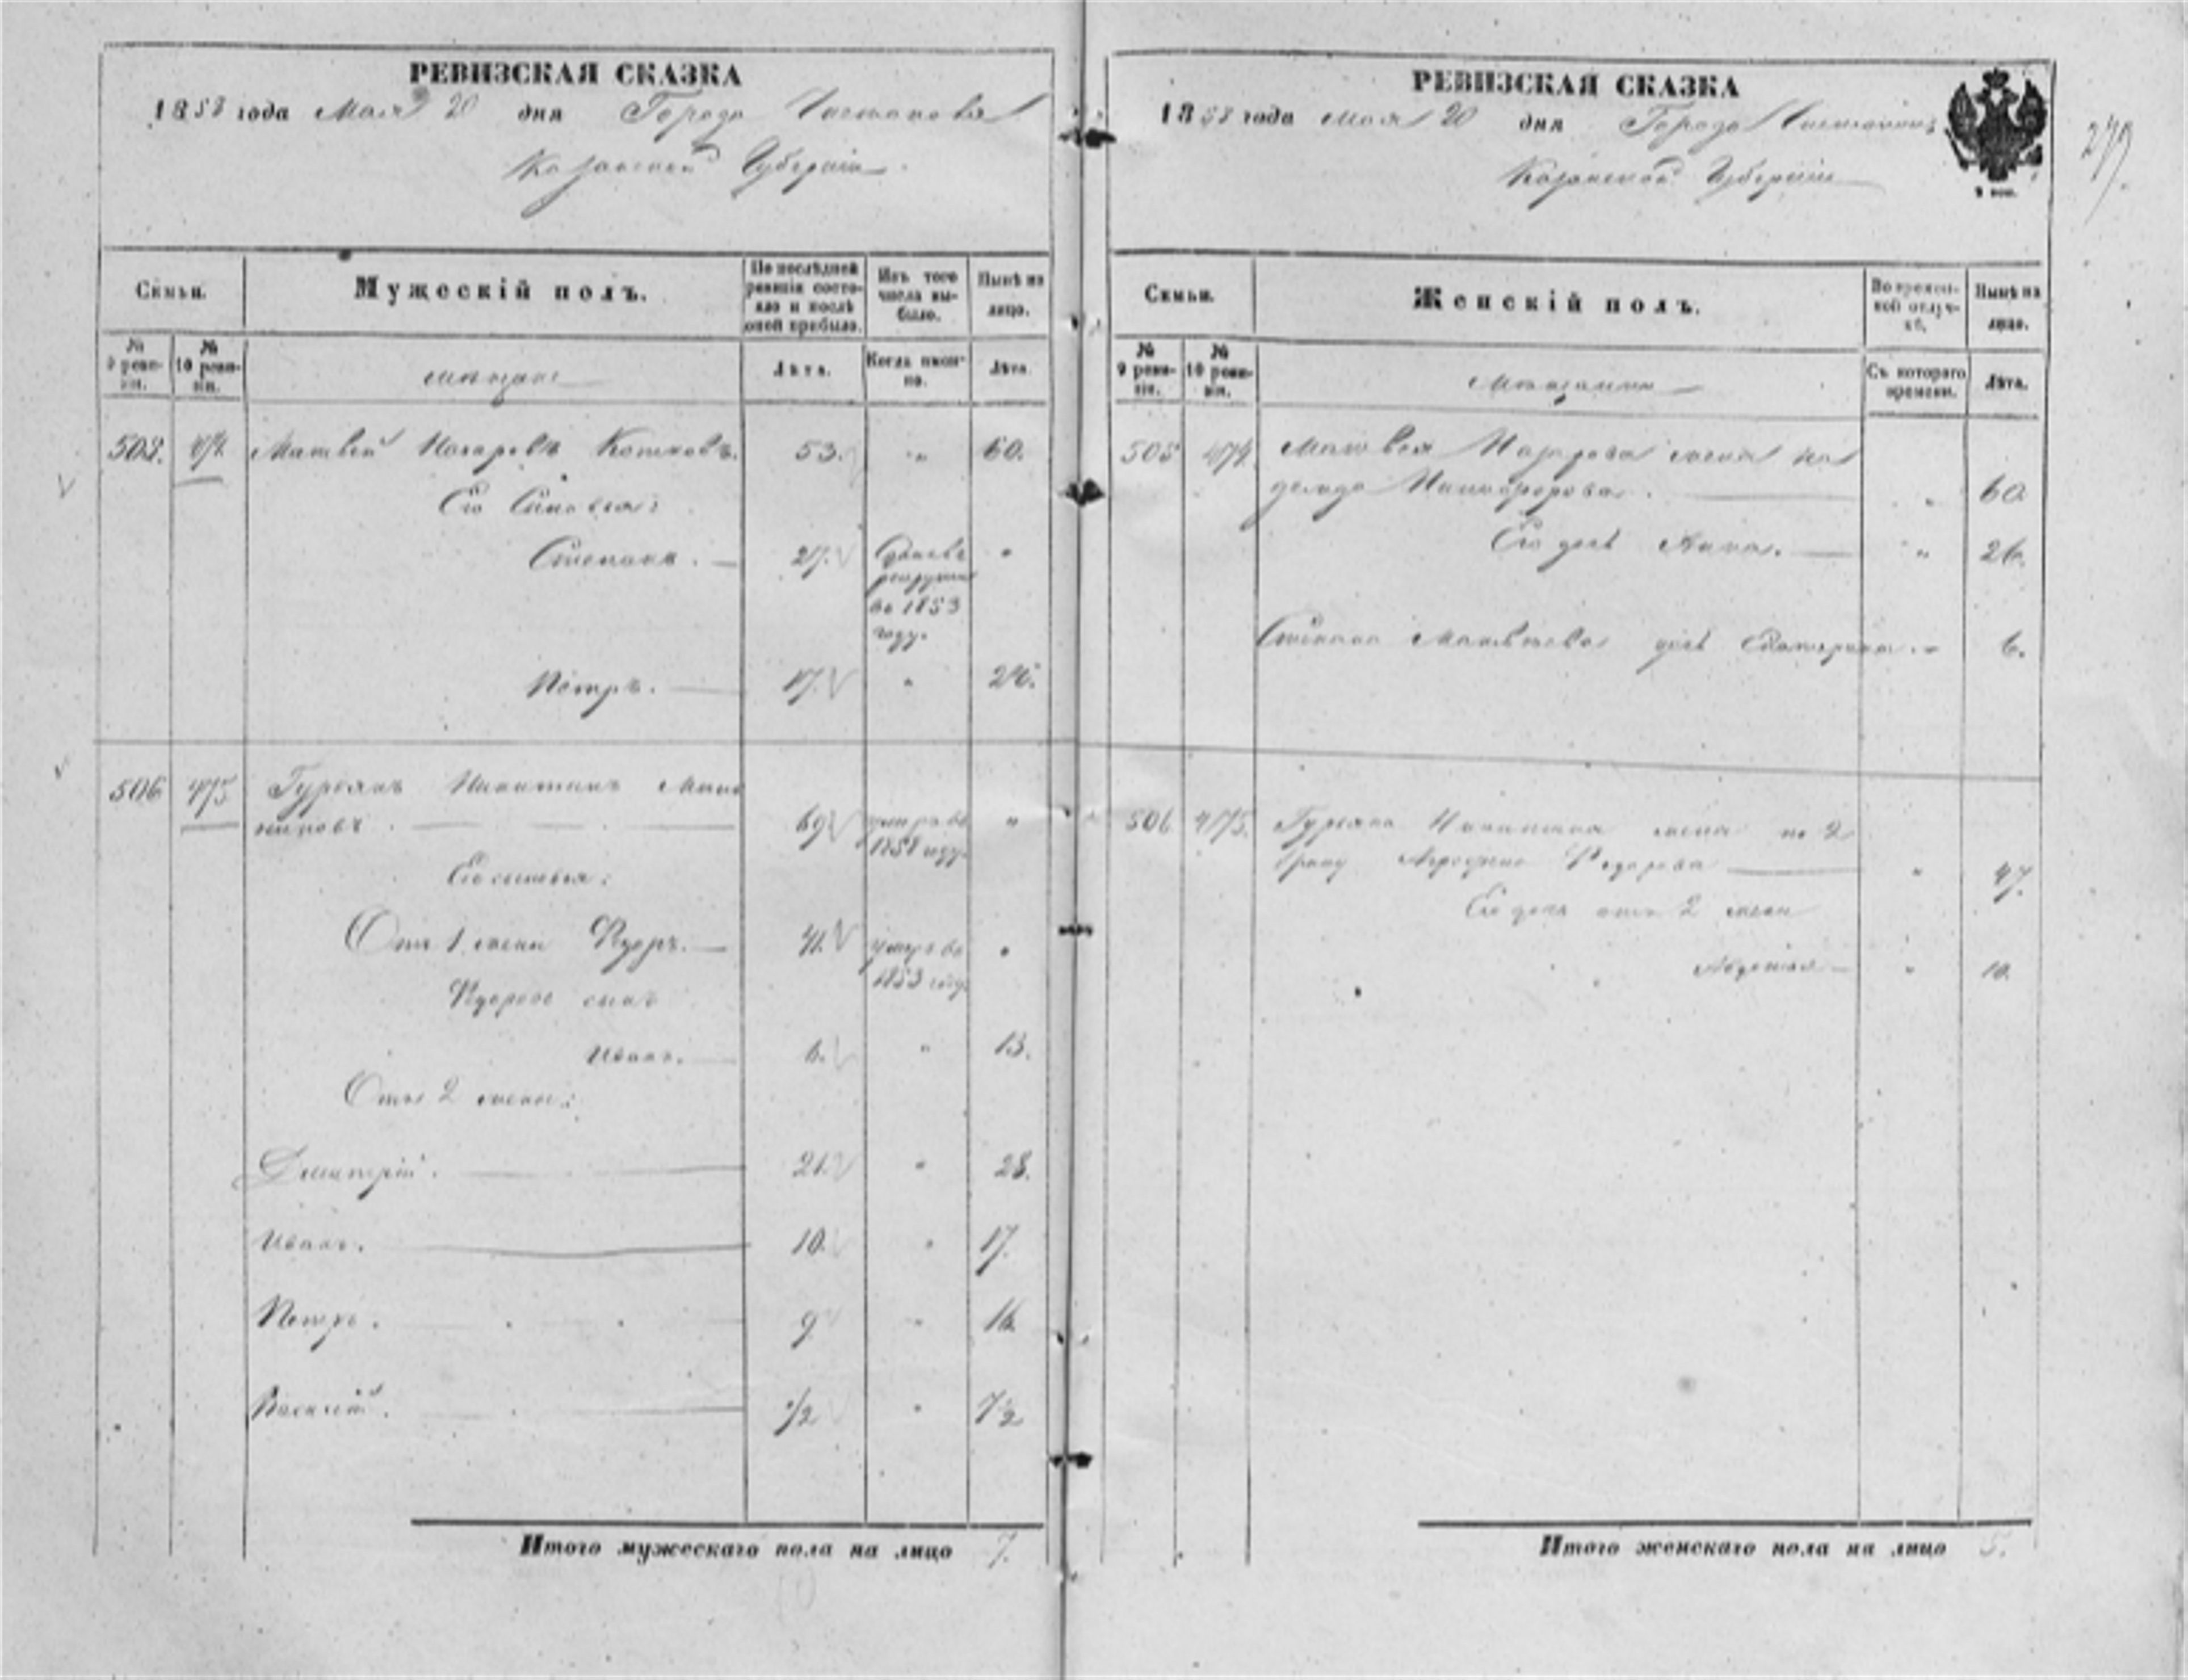 РЕВИЗСКАЯ СКАЗКА
1858 года Мая 20 дня Города Чистополя
Казанской Губернии.
Семьи.
Мужескій полъ.
По послѣдней ревизіи состояло и послѣ оной прибыло.
Изъ того числа выбыло.
Нынѣ на лицо.
№ 9 ревизіи.
№ 10 ревизіи.
мѣщане
Лѣта.
Когда именно.
Лѣта.
505. 474. Матвей Назаровъ Котковъ. 53. " 60.
Его Сыновья:
Степанъ. 27. Отданъ въ рекруты въ 1853 году. "
Петръ. 17. " 24.
506 475 Гурьянъ Никитинъ
69 умеръ въ 1858 году. "
Его сыновья:
Отъ 1 жены Ѳедоръ. 41. умеръ въ 1853 году. "
Ѳедоровъ сынъ
Иванъ. 6. " 13.
Отъ 2 жены:
Дмитрій. 21. " 28.
Иванъ. 10. " 17.
Петръ. 9 " 16.
Василій. 1/2 " 7 1/2
Итого мужескаго пола на лицо 7.
РЕВИЗСКАЯ СКАЗКА
1858 года Мая 20 дня Города Чистополя
Казанской Губерніи
279.
Семьи.
Женскій полъ.
Во временной отлучкѣ.
Нынѣ на лицо.
№ 9 ревизіи.
№ 10 ревизіи.
Мѣщанки
Съ котораго времени.
Лѣта.
505 474 Матвея Назарова жена На
дежда Никифорова. " 60
Его дочь Анна. " 26.
Степана Матвеева дочь Екатерина. " 6.
506 475. Гурьяна Никитина жена по 2
браку Ѳедорова " 47.
Его дочь отъ 2 жены
Авдотья " 10.
Итого женскаго пола на лицо 5.